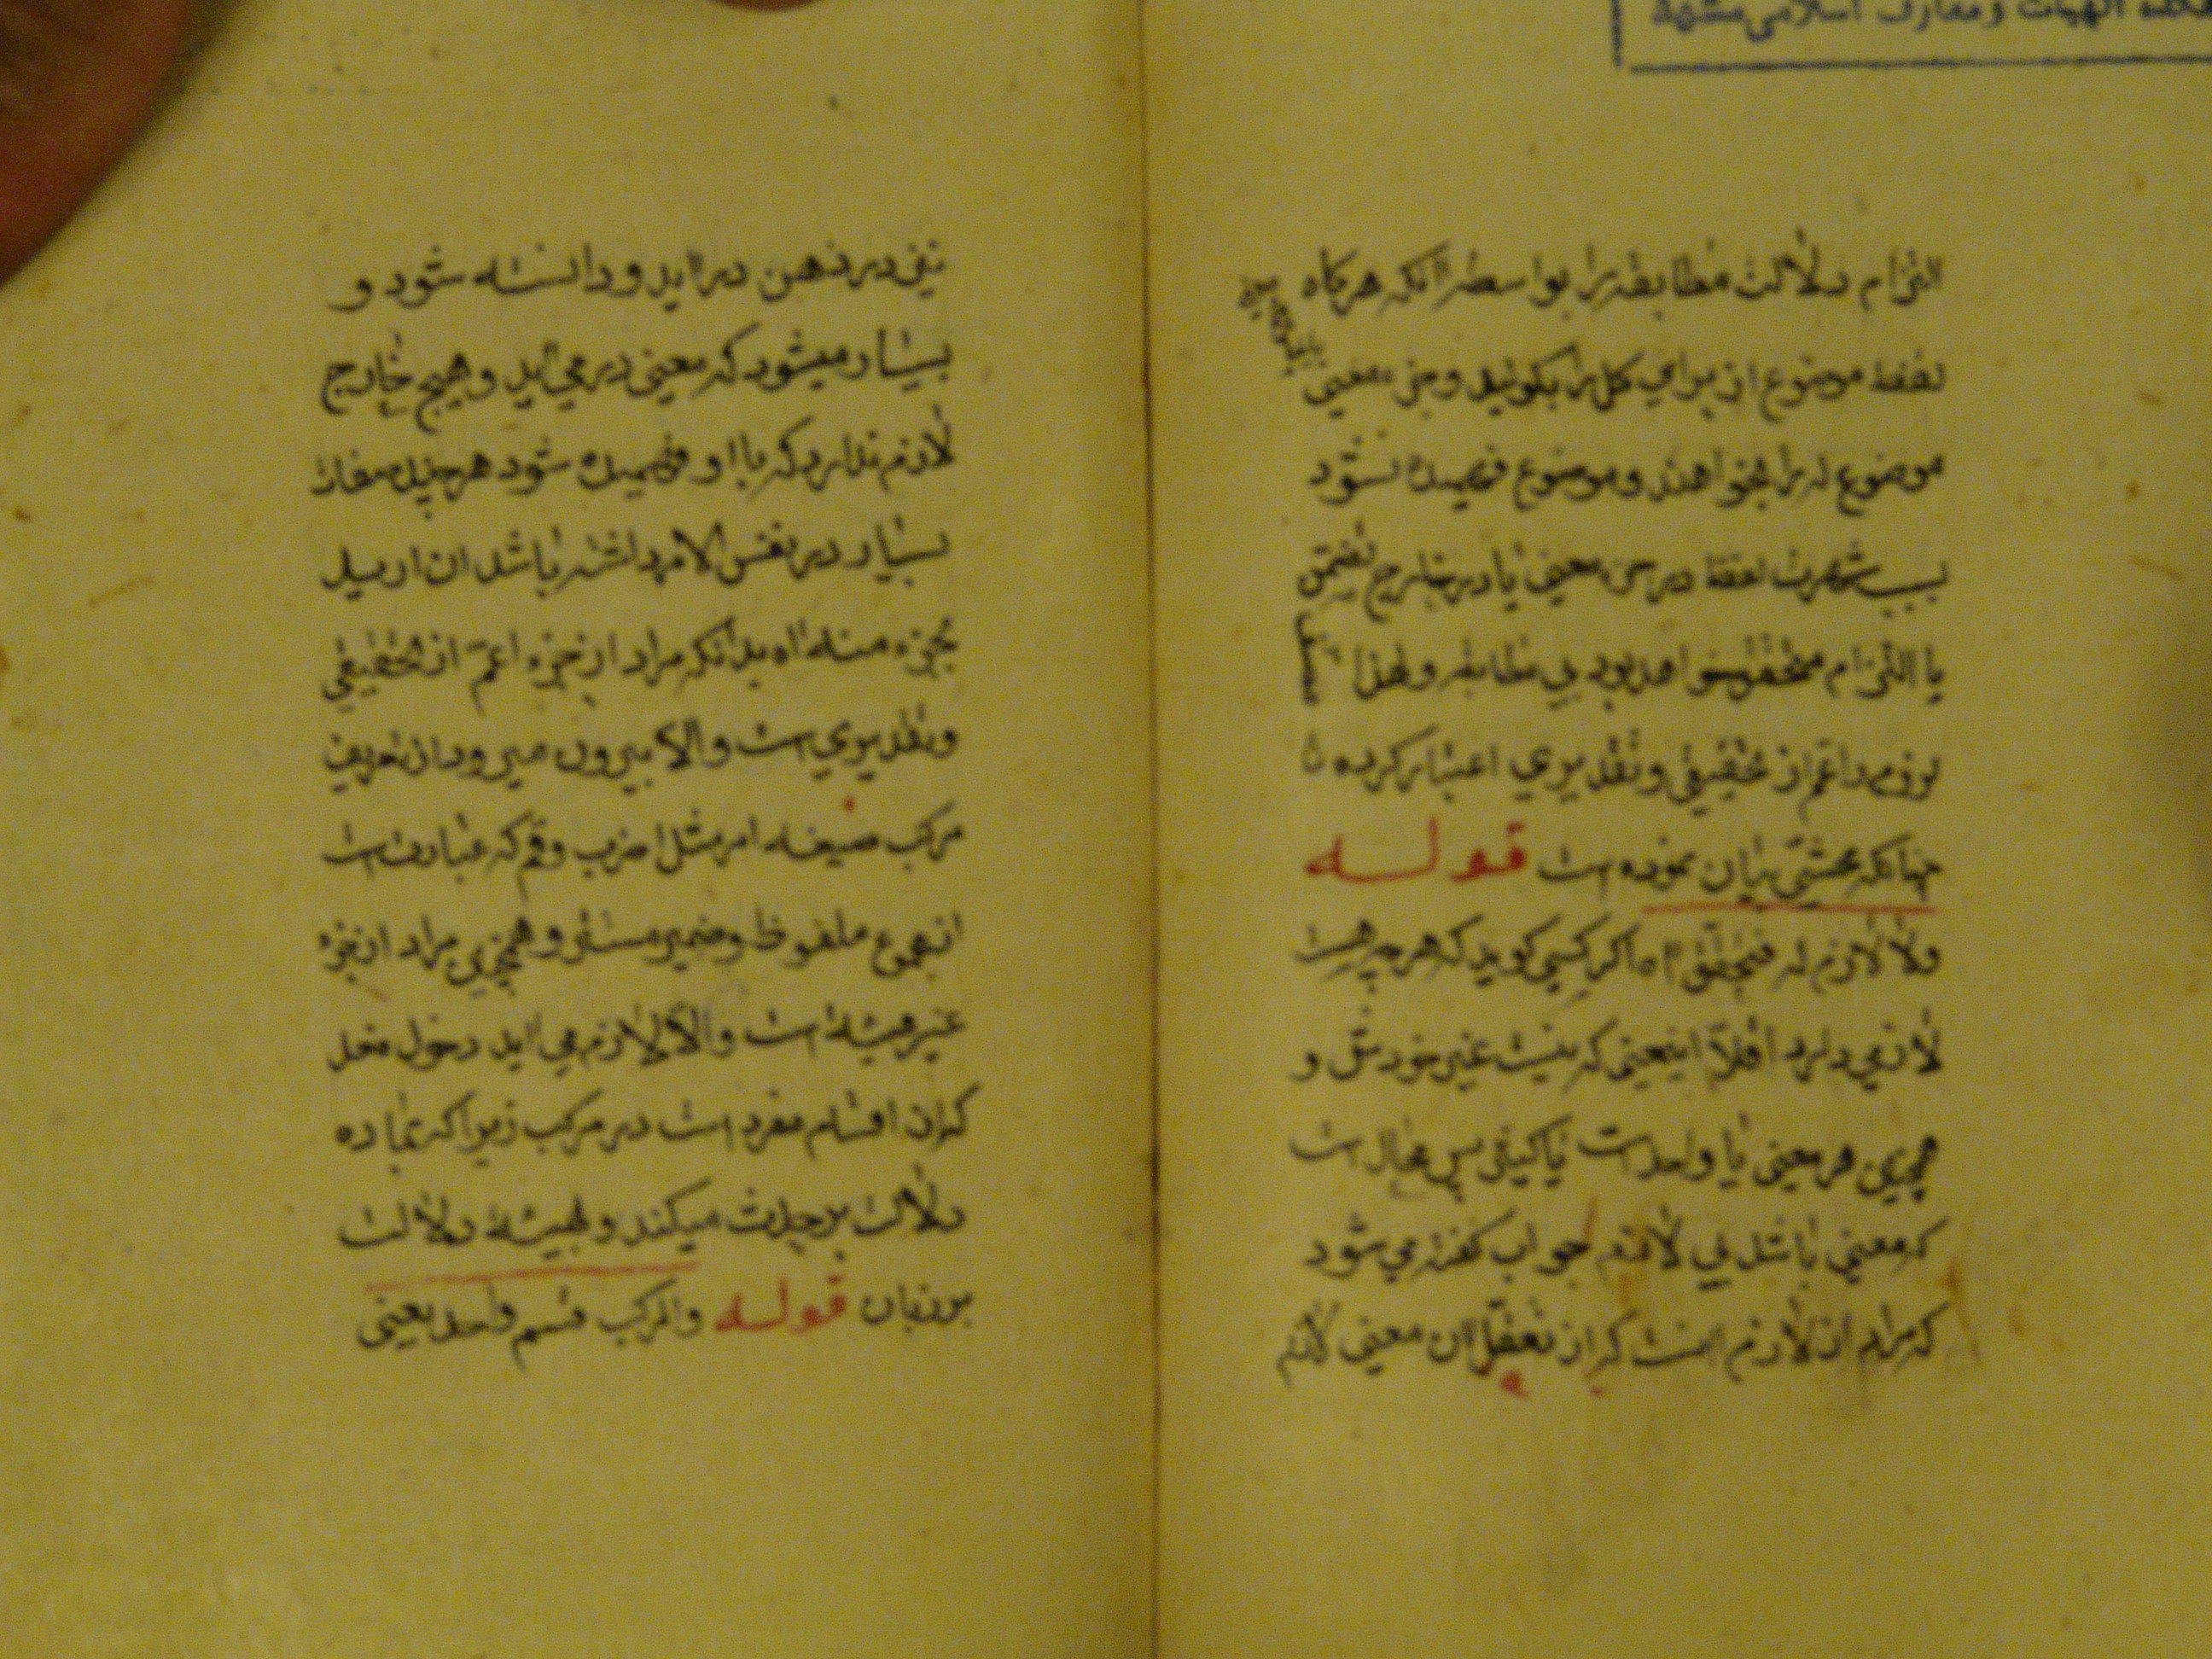 دانشکده الهیات و معارف اسلامی مشهد
التزام دلالت مطابقه را بواسطه آنکه هرکاه
لفظ موضوع از برای کل را بکویند و جزء معنی
موضوع له را بخواهند و موضوع فهمیده نشود
بسبب شهرت لفظ در جزء معنی یا در خارج تضمن
یا التزام متحقق خواهد بود بی مطابقه و لهذا
لزوم را اعم از تحقیقی و تقدیری اعتبار کرده
چنانکه محشی بیان نموده است قوله
ولا لازم له فیتحقق آه اکر کسی کوید که هر چه هست
لازمی دارد اقلا اینمعنی که نیست غیر خودش و
همچنین هر معنی یا واحد است یا کثیر پس محال است
که معنی باشد بی لازم جواب کفته می شود
که مراد از لازم آنست که از تعقل آن معنی لازم
نیز در ذهن در آید و دانسته شود و
بسیار میشود که معنی در می آید و هیچ خارج
لازم ندارد که با او فهمیده شود هر چند صفات
بسیار در نفس الامر داشته باشد ان ارید
بجزء منه آه بدانکه مراد از جزء اعم از تحقیقی
و تقدیری است و الا بیرون میرود از تعریف
مرکب صیغه امر مثل اضرب و قم که عبارت است
از مجموع ملفوظ و ضمیر مستتر و همچنین مراد از جزء
غیر هیئة است و الا لازم می آید دخول فعل
که از اقسام مفرد است در مرکب زیرا که بماده
دلالت بر حدث میکند و بهیئة دلالت
بر زمان قوله والمرکب قسم واحد یعنی